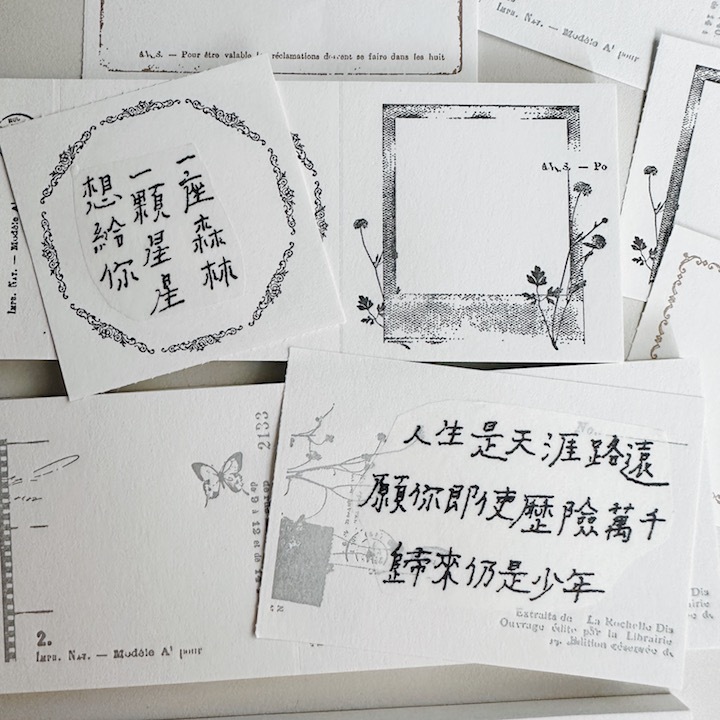 a.h.s. — Pour être valable les réclamations doivent se faire dans les huit
Imp. Nat. — Modèle A¹ pour
a.h.s. — Po
Imp. Nat. — Modèle A
一座森林
一顆星星
想給你
2133
de 9 à 12 et de
2.
Imp. Nat. — Modèle A¹ pour
No.
人生是天涯路遠
願你即使歷險萬千
歸來仍是少年
Extraits de La Rochelle Dis
Ouvrage édité par la Librairie
Edition réservée de